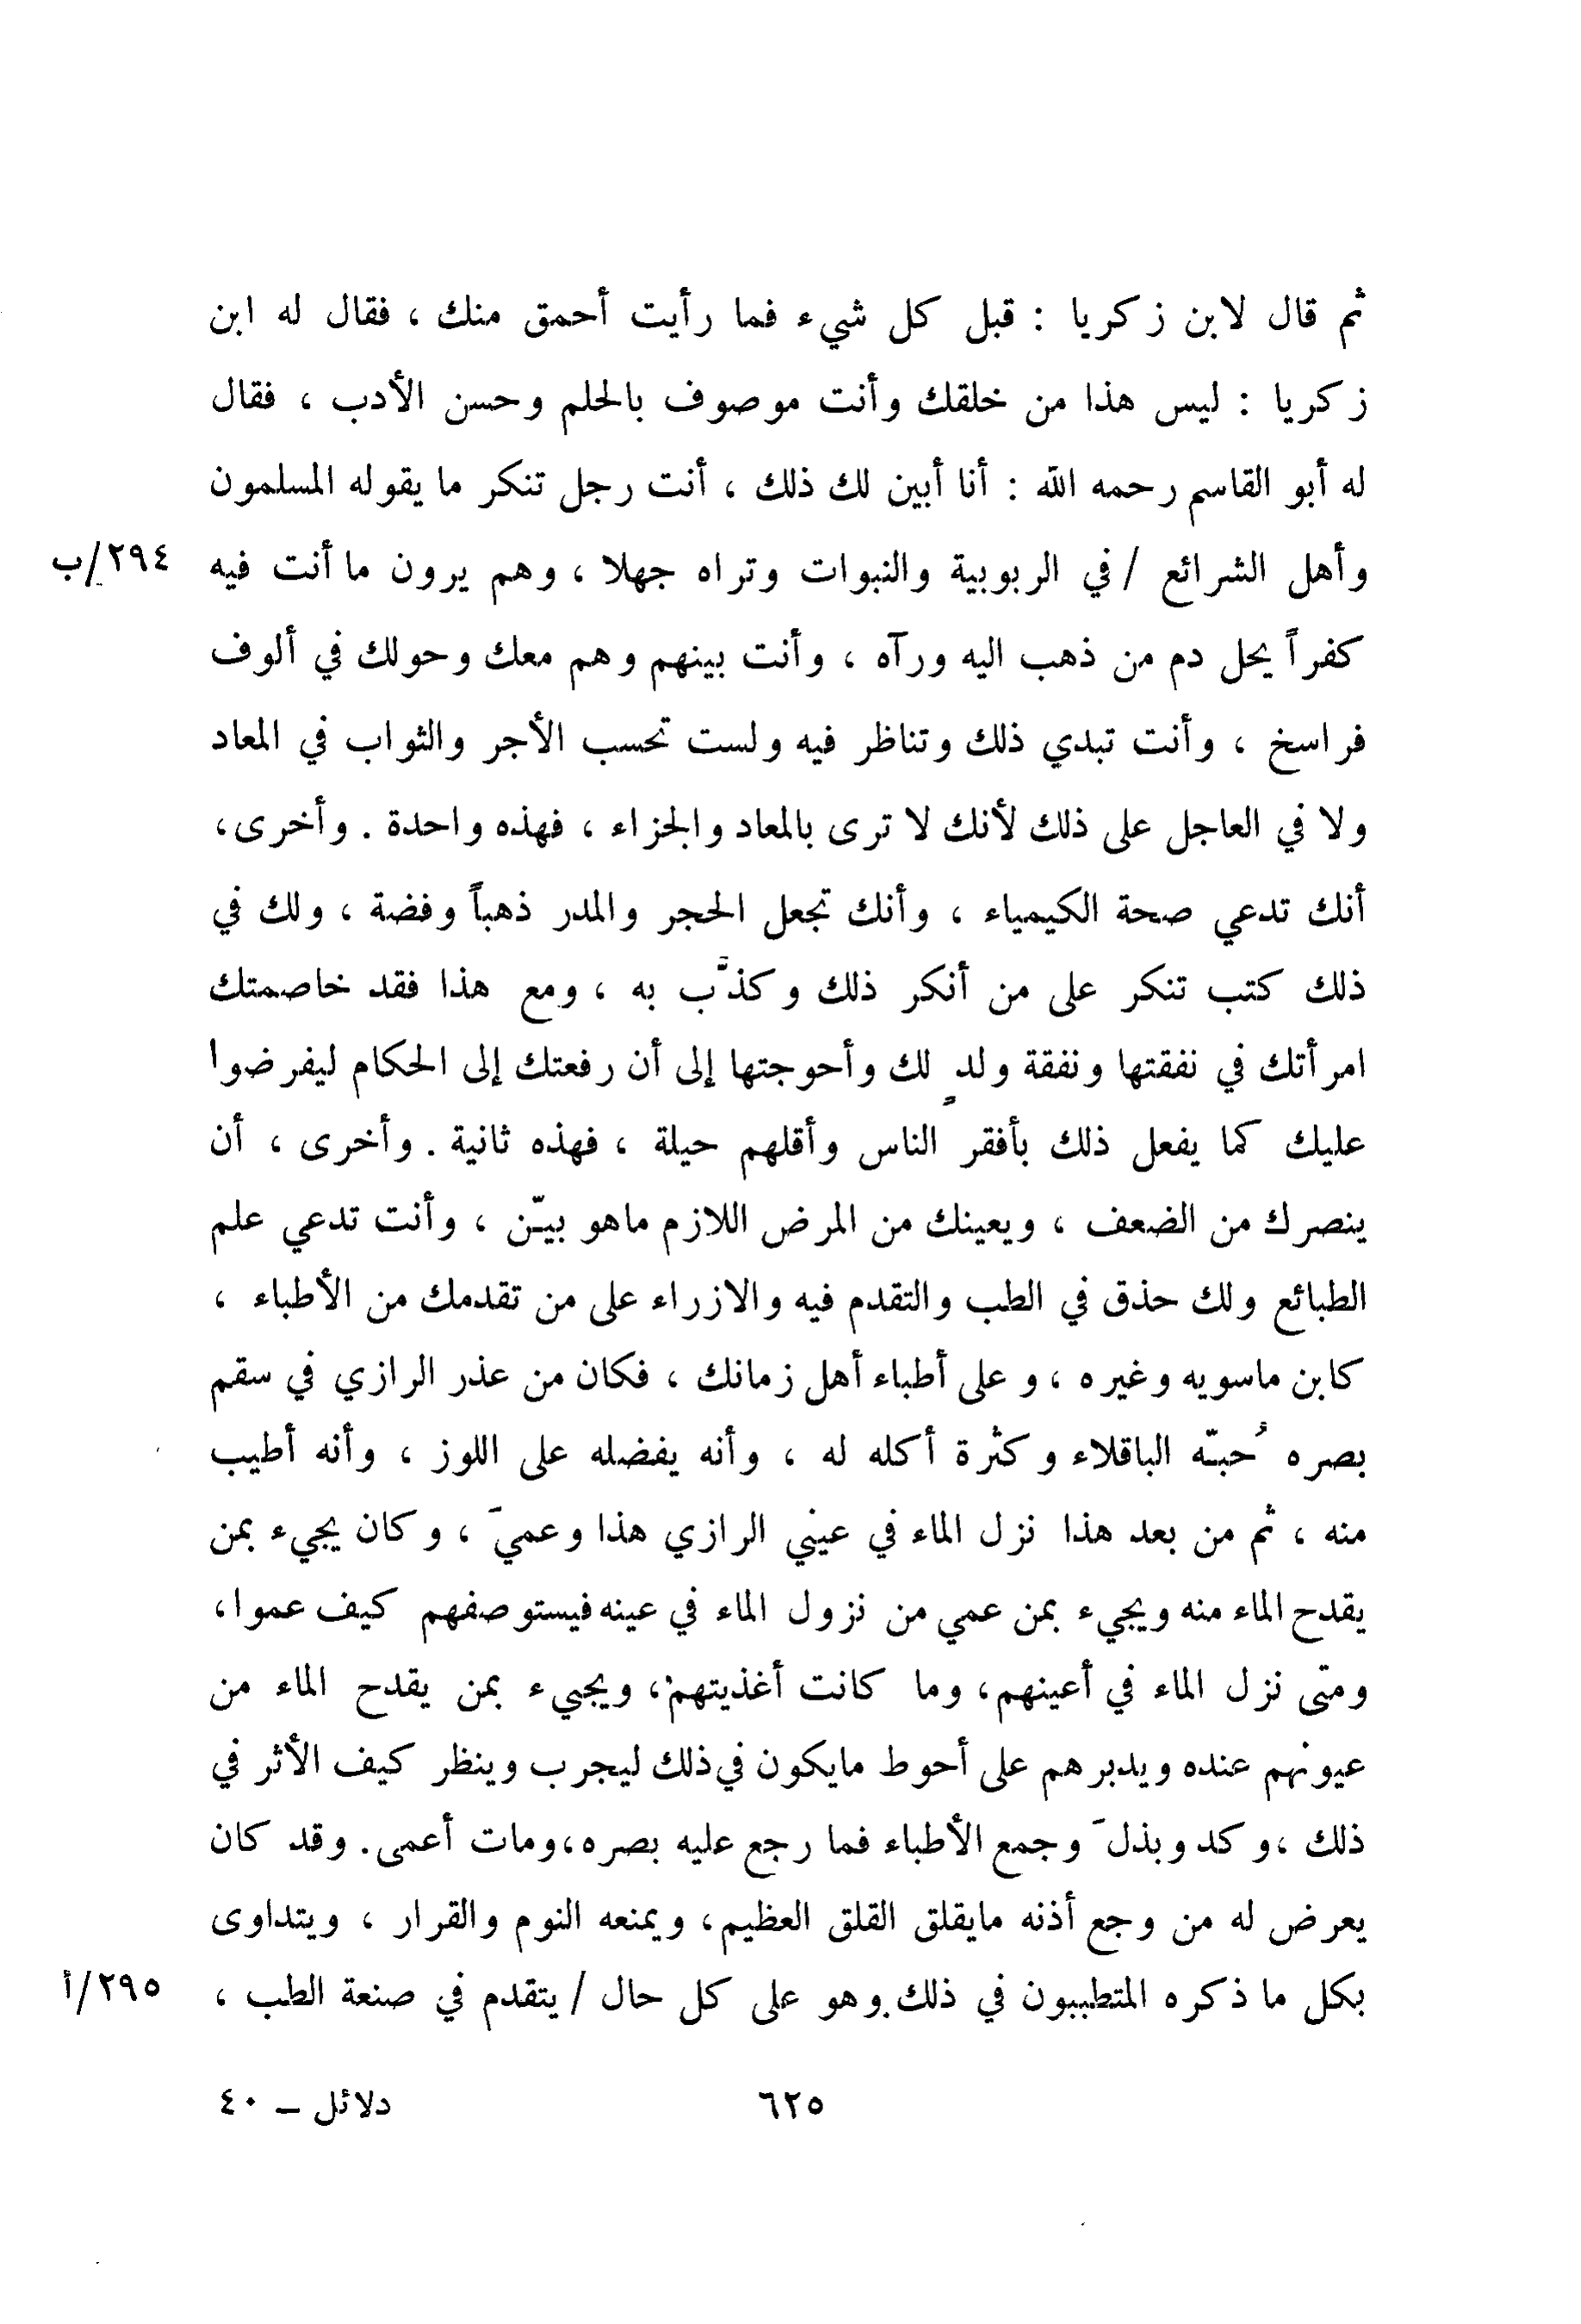 ثم قال لابن زكريا : قبل كل شيء فما رأيت أحمق منك ، فقال له ابن
زكريا : ليس هذا من خلقك وأنت موصوف بالحلم وحسن الأدب ، فقال
له أبو القاسم رحمه الله : أنا أبين لك ذلك ، أنت رجل تنكر ما يقوله المسلمون
وأهل الشرائع / في الربوبية والنبوات وتراه جهلا ، وهم يرون ما أنت فيه ٢٩٤/ب
كفراً يحل دم من ذهب اليه ورآه ، وأنت بينهم وهم معك وحولك في ألوف
فراسخ ، وأنت تبدي ذلك وتناظر فيه ولست تحسب الأجر والثواب في المعاد
ولا في العاجل على ذلك لأنك لا ترى بالمعاد والجزاء ، فهذه واحدة . وأخرى،
أنك تدعي صحة الكيمياء ، وأنك تجعل الحجر والمدر ذهباً وفضة ، ولك في
ذلك كتب تنكر على من أنكر ذلك وكذَّب به ، ومع هذا فقد خاصمتك
امرأتك في نفقتها ونفقة ولدٍ لك وأحوجتها إلى أن رفعتك إلى الحكام ليفرضوا
عليك كما يفعل ذلك بأفقر الناس وأقلهم حيلة ، فهذه ثانية . وأخرى ، أن
ينصرك من الضعف ، ويعينك من المرض اللازم ماهو بيّن ، وأنت تدعي علم
الطبائع ولك حذق في الطب والتقدم فيه والازراء على من تقدمك من الأطباء ،
كابن ماسويه وغيره ، و على أطباء أهل زمانك ، فكان من عذر الرازي في سقم
بصره حُبّه الباقلاء وكثرة أكله له ، وأنه يفضله على اللوز ، وأنه أطيب
منه ، ثم من بعد هذا نزل الماء في عيني الرازي هذا وعميَ ، وكان يجيء بمن
يقدح الماء منه ويجيء بمن عمي من نزول الماء في عينه فيستوصفهم كيف عموا،
ومتى نزل الماء في أعينهم، وما كانت أغذيتهم، ويجيء بمن يقدح الماء من
عيونهم عنده ويدبرهم على أحوط مايكون في ذلك ليجرب وينظر كيف الأثر في
ذلك ،وكد وبذلَ وجمع الأطباء فما رجع عليه بصره،ومات أعمى. وقد كان
يعرض له من وجع أذنه مايقلق القلق العظيم، ويمنعه النوم والقرار ، ويتداوى
بكل ما ذكره المتطببون في ذلك.وهو على كل حال / يتقدم في صنعة الطب ، ٢٩٥/أ
٦٢٥ دلائل – ٤٠